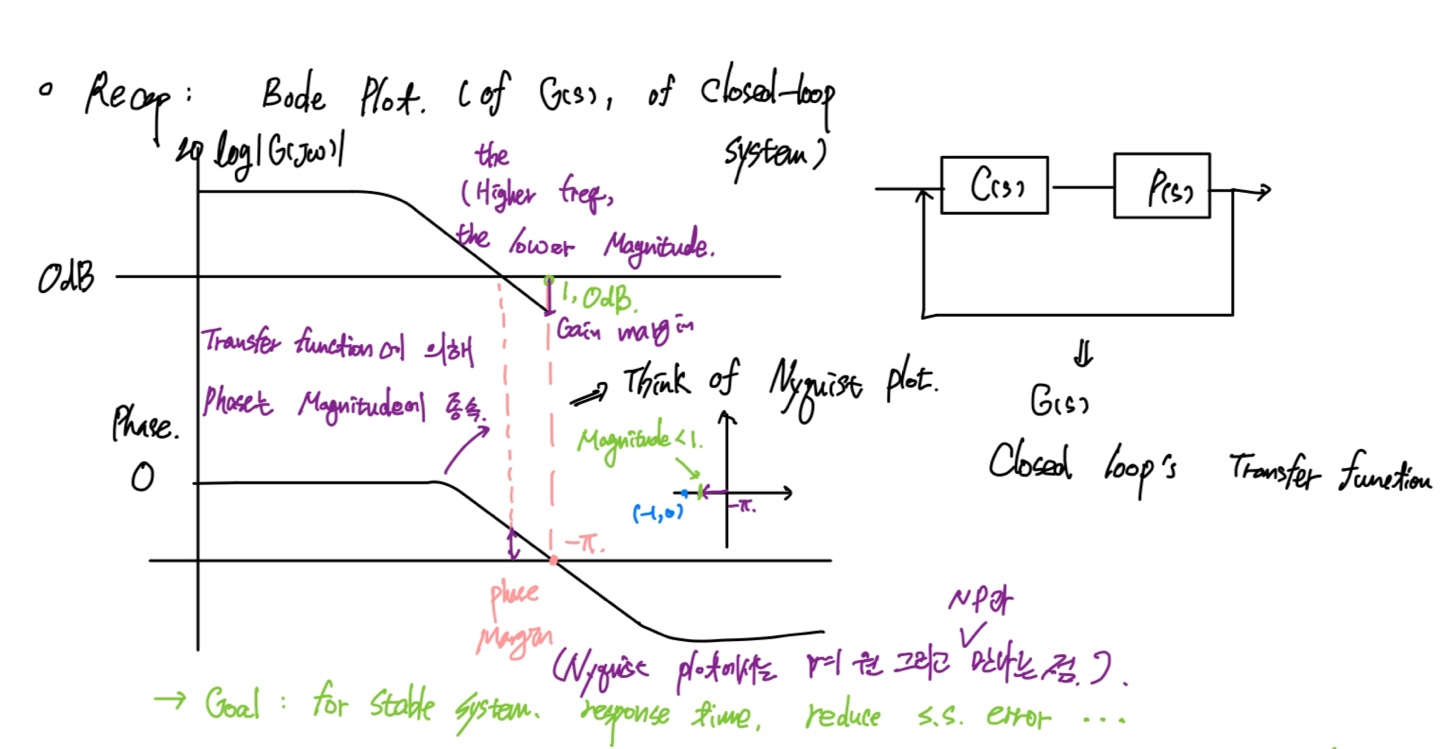 ∘ Recap : Bode Plot. (of G(s), of closed-loop system)
20 log|G(jω)|
the
(Higher freq,
the lower Magnitude.
0dB
1, 0dB.
Gain margin
Transfer function에 의해
Phase는 Magnitude에 종속.
Phase.
0
⇒ Think of Nyquist plot.
Magnitude<1.
(-1,0)
-π.
-π.
phase
Margin
C(s)
P(s)
⇓
G(s)
Closed loop's Transfer function
NP와
(Nyquist plot에서는 r=1 원 그리고 만나는 점.).
→ Goal : for stable system. response time, reduce s.s. error ...